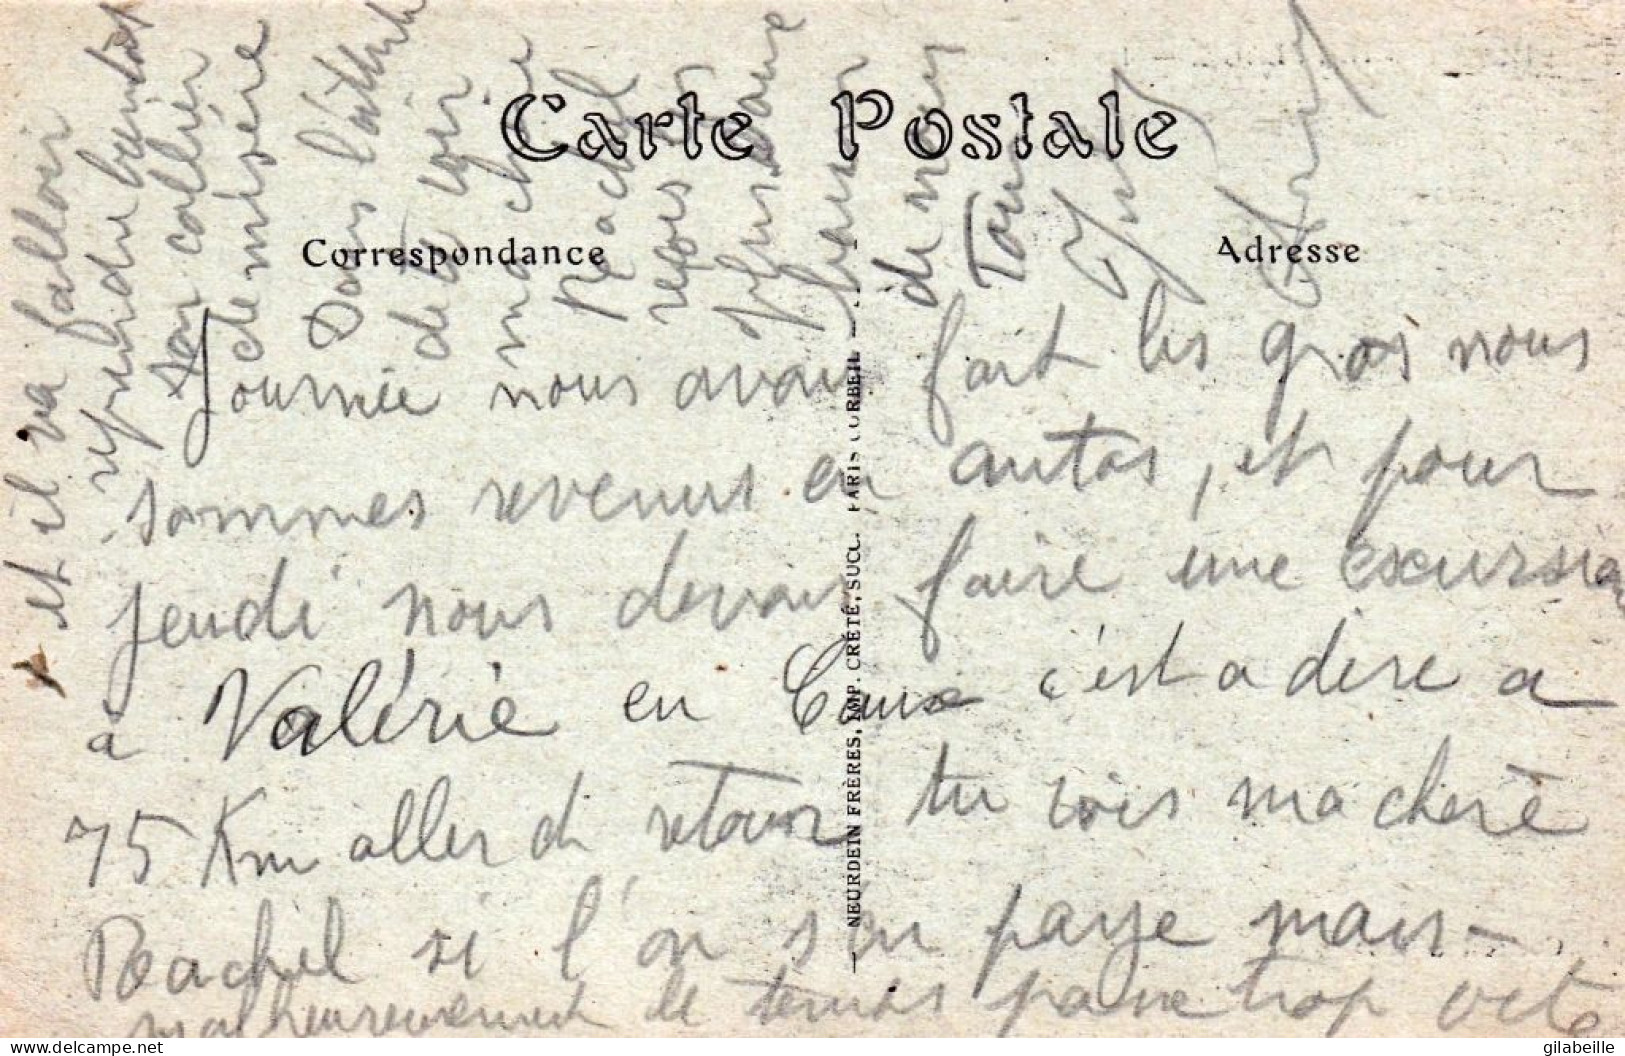 Carte Postale
Correspondance
Adresse
Journée nous avons fait les gros nous
sommes revenus en autos, et pour
jeudi nous devons faire une excursion
à Valérie en Caux c'est a dire a
75 Km aller et retour tu vois ma chere
Rachel si l'on s'en paye mais -
malheureusement le temps passe trop vite
et il va falloir
reprendre bientôt
son collier
de misère
Dans l'attente
de te voir
ma chere
Rachel
reçois
plusieurs
baisers
de nous
Tous
NEURDEIN FRÈRES, IMP. CRÉTÉ, SUCC. PARIS CORBEIL
© delcampe.net
gilabeille